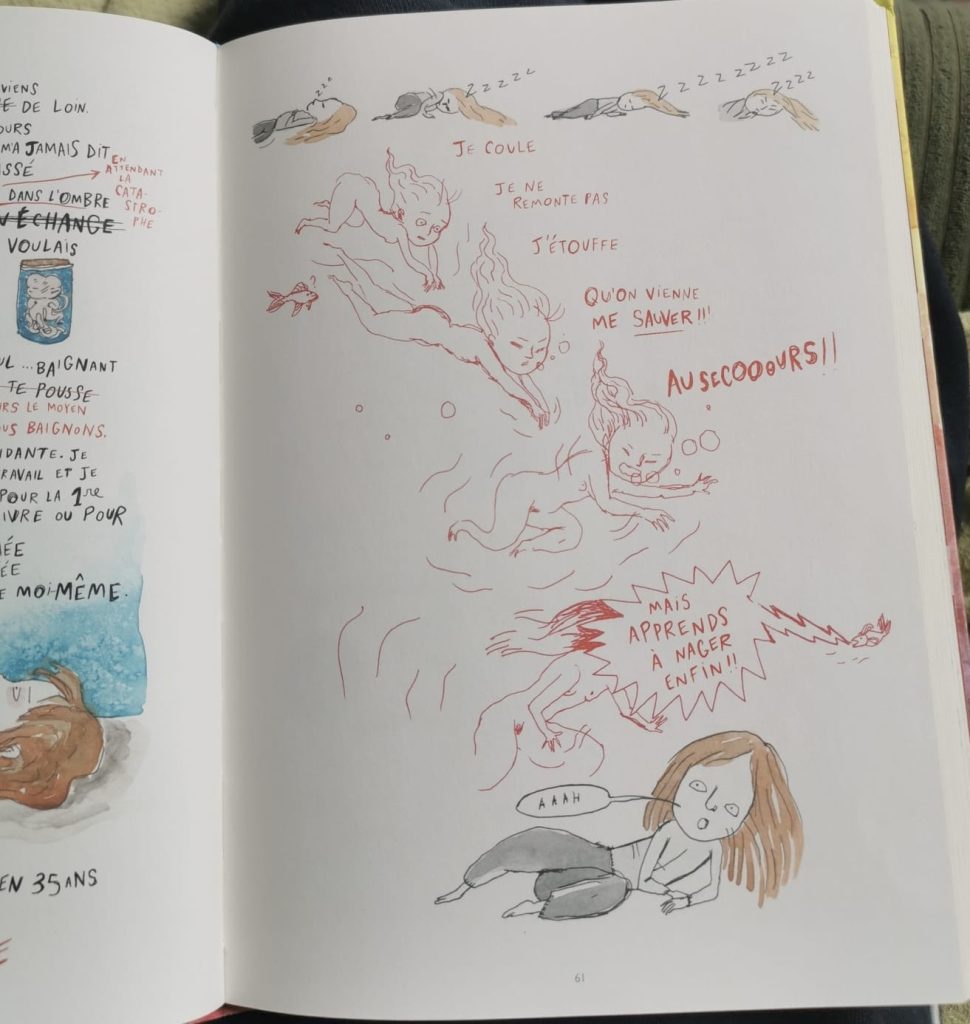 VIENS
DE LOIN.
OURS
M'A JAMAIS DIT
SSÉ
EN
ATTENDANT
LA
CATA-
STRO-
PHE
DANS L'OMBRE
ÉCHANGE
VOULAIS
UL ...BAIGNANT
TE POUSSE
RS LE MOYEN
US BAIGNONS.
IDANTE. JE
RAVAIL ET JE
POUR LA 1re
IVRE OU POUR
ÉE
ÉE
E MOI-MÊME.
EN 35 ANS
ZZZ
ZZZZZ
ZZZZZZZZZ
ZZZZ
JE COULE
JE NE
REMONTE PAS
J'ÉTOUFFE
QU'ON VIENNE
ME SAUVER!!!
AU SECOOOURS!!
MAIS
APPRENDS
À NAGER
ENFIN!!
AAAH
61